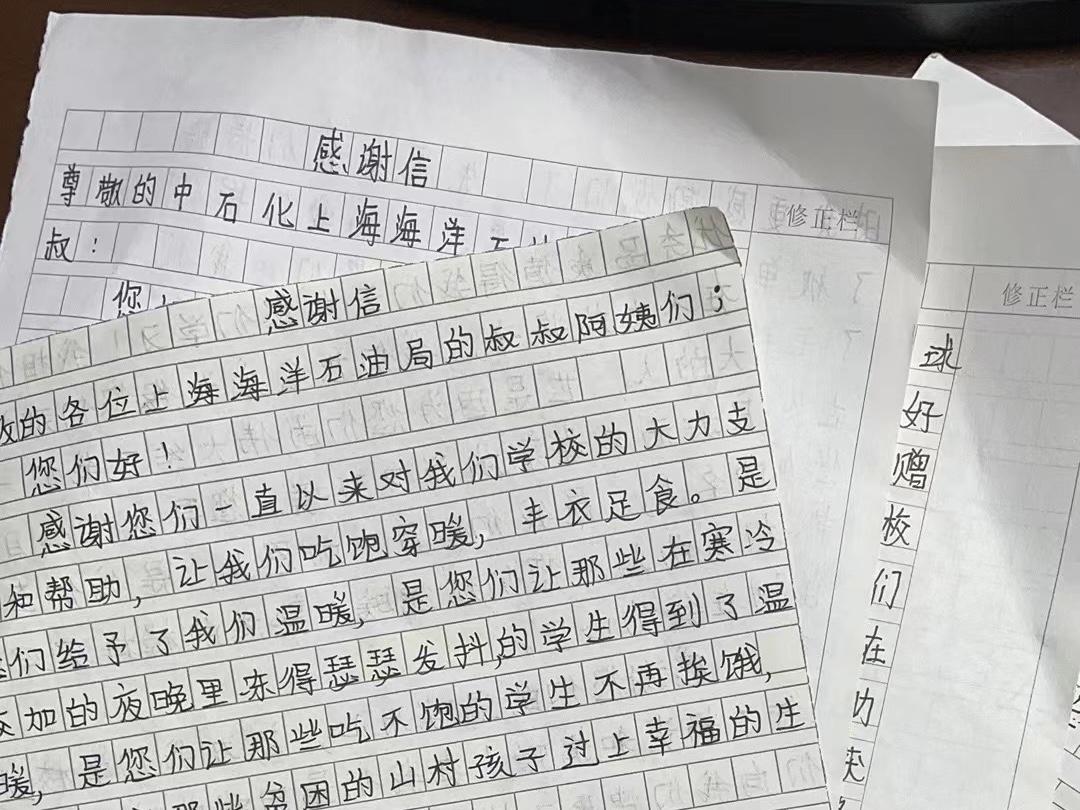 感谢信
尊敬的中石化上海海洋石
叔：
您
修正栏
感谢信
的各位上海海洋石油局的叔叔阿姨们；
您们好！
感谢您们一直以来对我们学校的大力支
和帮助，让我们吃饱穿暖，丰衣足食。是
们给予了我们温暖，是您们让那些在寒冷
加的夜晚里冻得瑟瑟发抖的学生得到了温
暖，是您们让那些吃不饱的学生不再挨饿，
那些贫困的山村孩子过上幸福的生
修正栏
球
好
赠
校
们
在